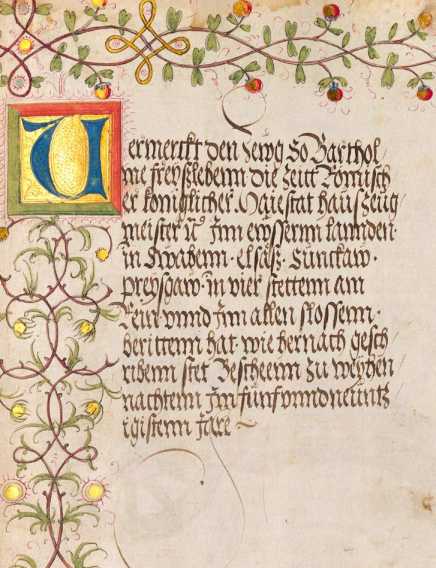 Vermerckt den zewg So Barthol
me freyszlebenn die zeitt Romisch
er koniglicher Maiestat hauszeug
meister vnd Inn ewsserm lannden
in Swabenn · Elsasz · Sunckaw ·
preysgaw · in vier stettenn am
Rein vnnd Inn allen slossenn ·
berittenn hat · wie hernach gesch
ribenn stet Bescheenn zu weyhen
nachtenn Im funfvnndneuntz
igistenn Jare ~